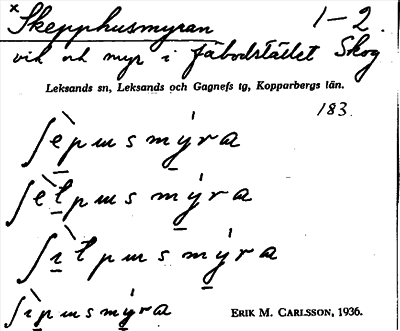 ×Skepphusmyran 1-2.
vik och myr i fäbodstället Skog
Leksands sn, Leksands och Gagnefs tg, Kopparbergs län.
183.
ʃèpusmýra
ʃètpusmýra
ʃìtpusmýra
ʃìpusmýra
ERIK M. CARLSSON, 1936.